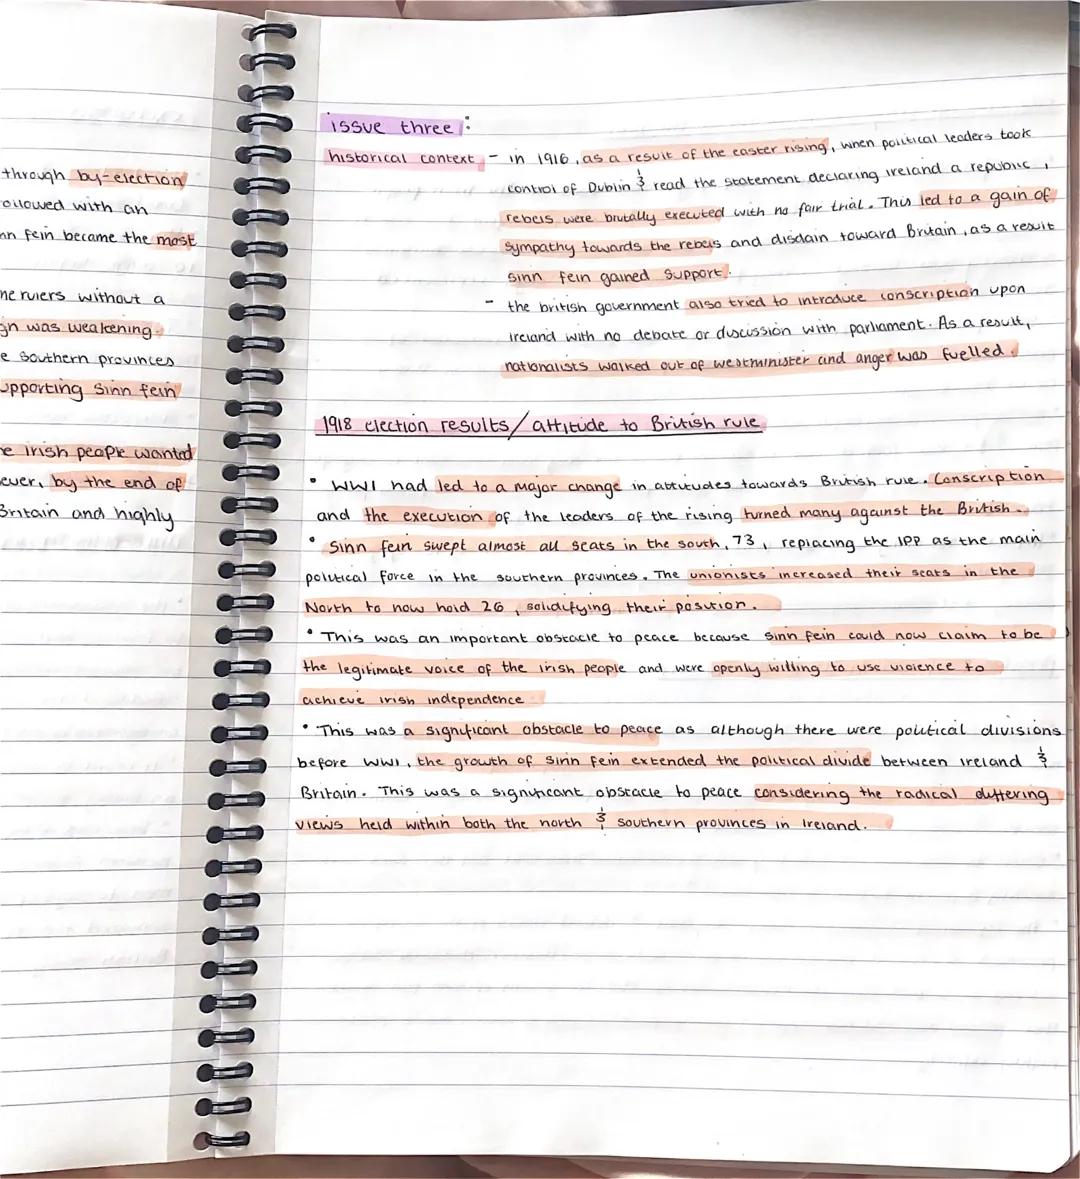 through by-election
ollowed with an
nn fein became the most
me rulers without a
gn was weakening.
e southern provinces
upporting Sinn fein
e irish people wanted
ever, by the end of
Britain and highly
issue three:
historical context - in 1916, as a result of the easter rising, when political leaders took
control of Dublin & read the statement declaring ireland a republic,
rebels were brutally executed with no fair trial. This led to a gain of
sympathy towards the rebels and disdain toward Britain, as a result
sinn fein gained support.
- the british government also tried to introduce conscription upon
ireland with no debate or discussion with parliament. As a result,
nationalists walked out of westminister and anger was fuelled.
1918 election results/attitude to British rule
• WWI had led to a major change in attitudes towards British rule. Conscription
and the execution of the leaders of the rising turned many against the British.
• Sinn fein swept almost all seats in the south, 73, replacing the IPP as the main
political force in the southern provinces. The unionists increased their seats in the
North to now hold 26, solidifying their position.
• This was an important obstacle to peace because sinn fein could now claim to be
the legitimate voice of the irish people and were openly willing to use violence to
achieve irish independence
• This was a significant obstacle to peace as although there were political divisions
before WWI, the growth of sinn fein extended the political divide between ireland &
Britain. This was a significant obstacle to peace considering the radical differing
views held within both the north & southern provinces in Ireland.